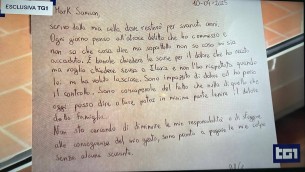 ESCLUSIVA TG1
10-09-2025
Mark Samson,
scrivo dalla mia cella dove resterò per svariati anni.
Ogni giorno penso all'atroce delitto che ho commesso e
non so che cosa dire ma soprattutto non so cosa mi sia
accaduto. È banale chiedere le scuse per il dolore che ho
ma voglio chiedere scusa a Ilaria e non l'ho rispettata quando
lei mi ha voluto lasciare. Sono impazzito di dolore ed ho perso
il controllo. Sono consapevole del fatto che nulla di quello che
oggi posso dire o fare potrà in minima parte lenire il dolore
della famiglia.
Non sto cercando di diminuire le mie responsabilità o di sfuggire
alle conseguenze del mio gesto, sono pronto a pagare le mie colpe
senza alcuno sconto.
TG1